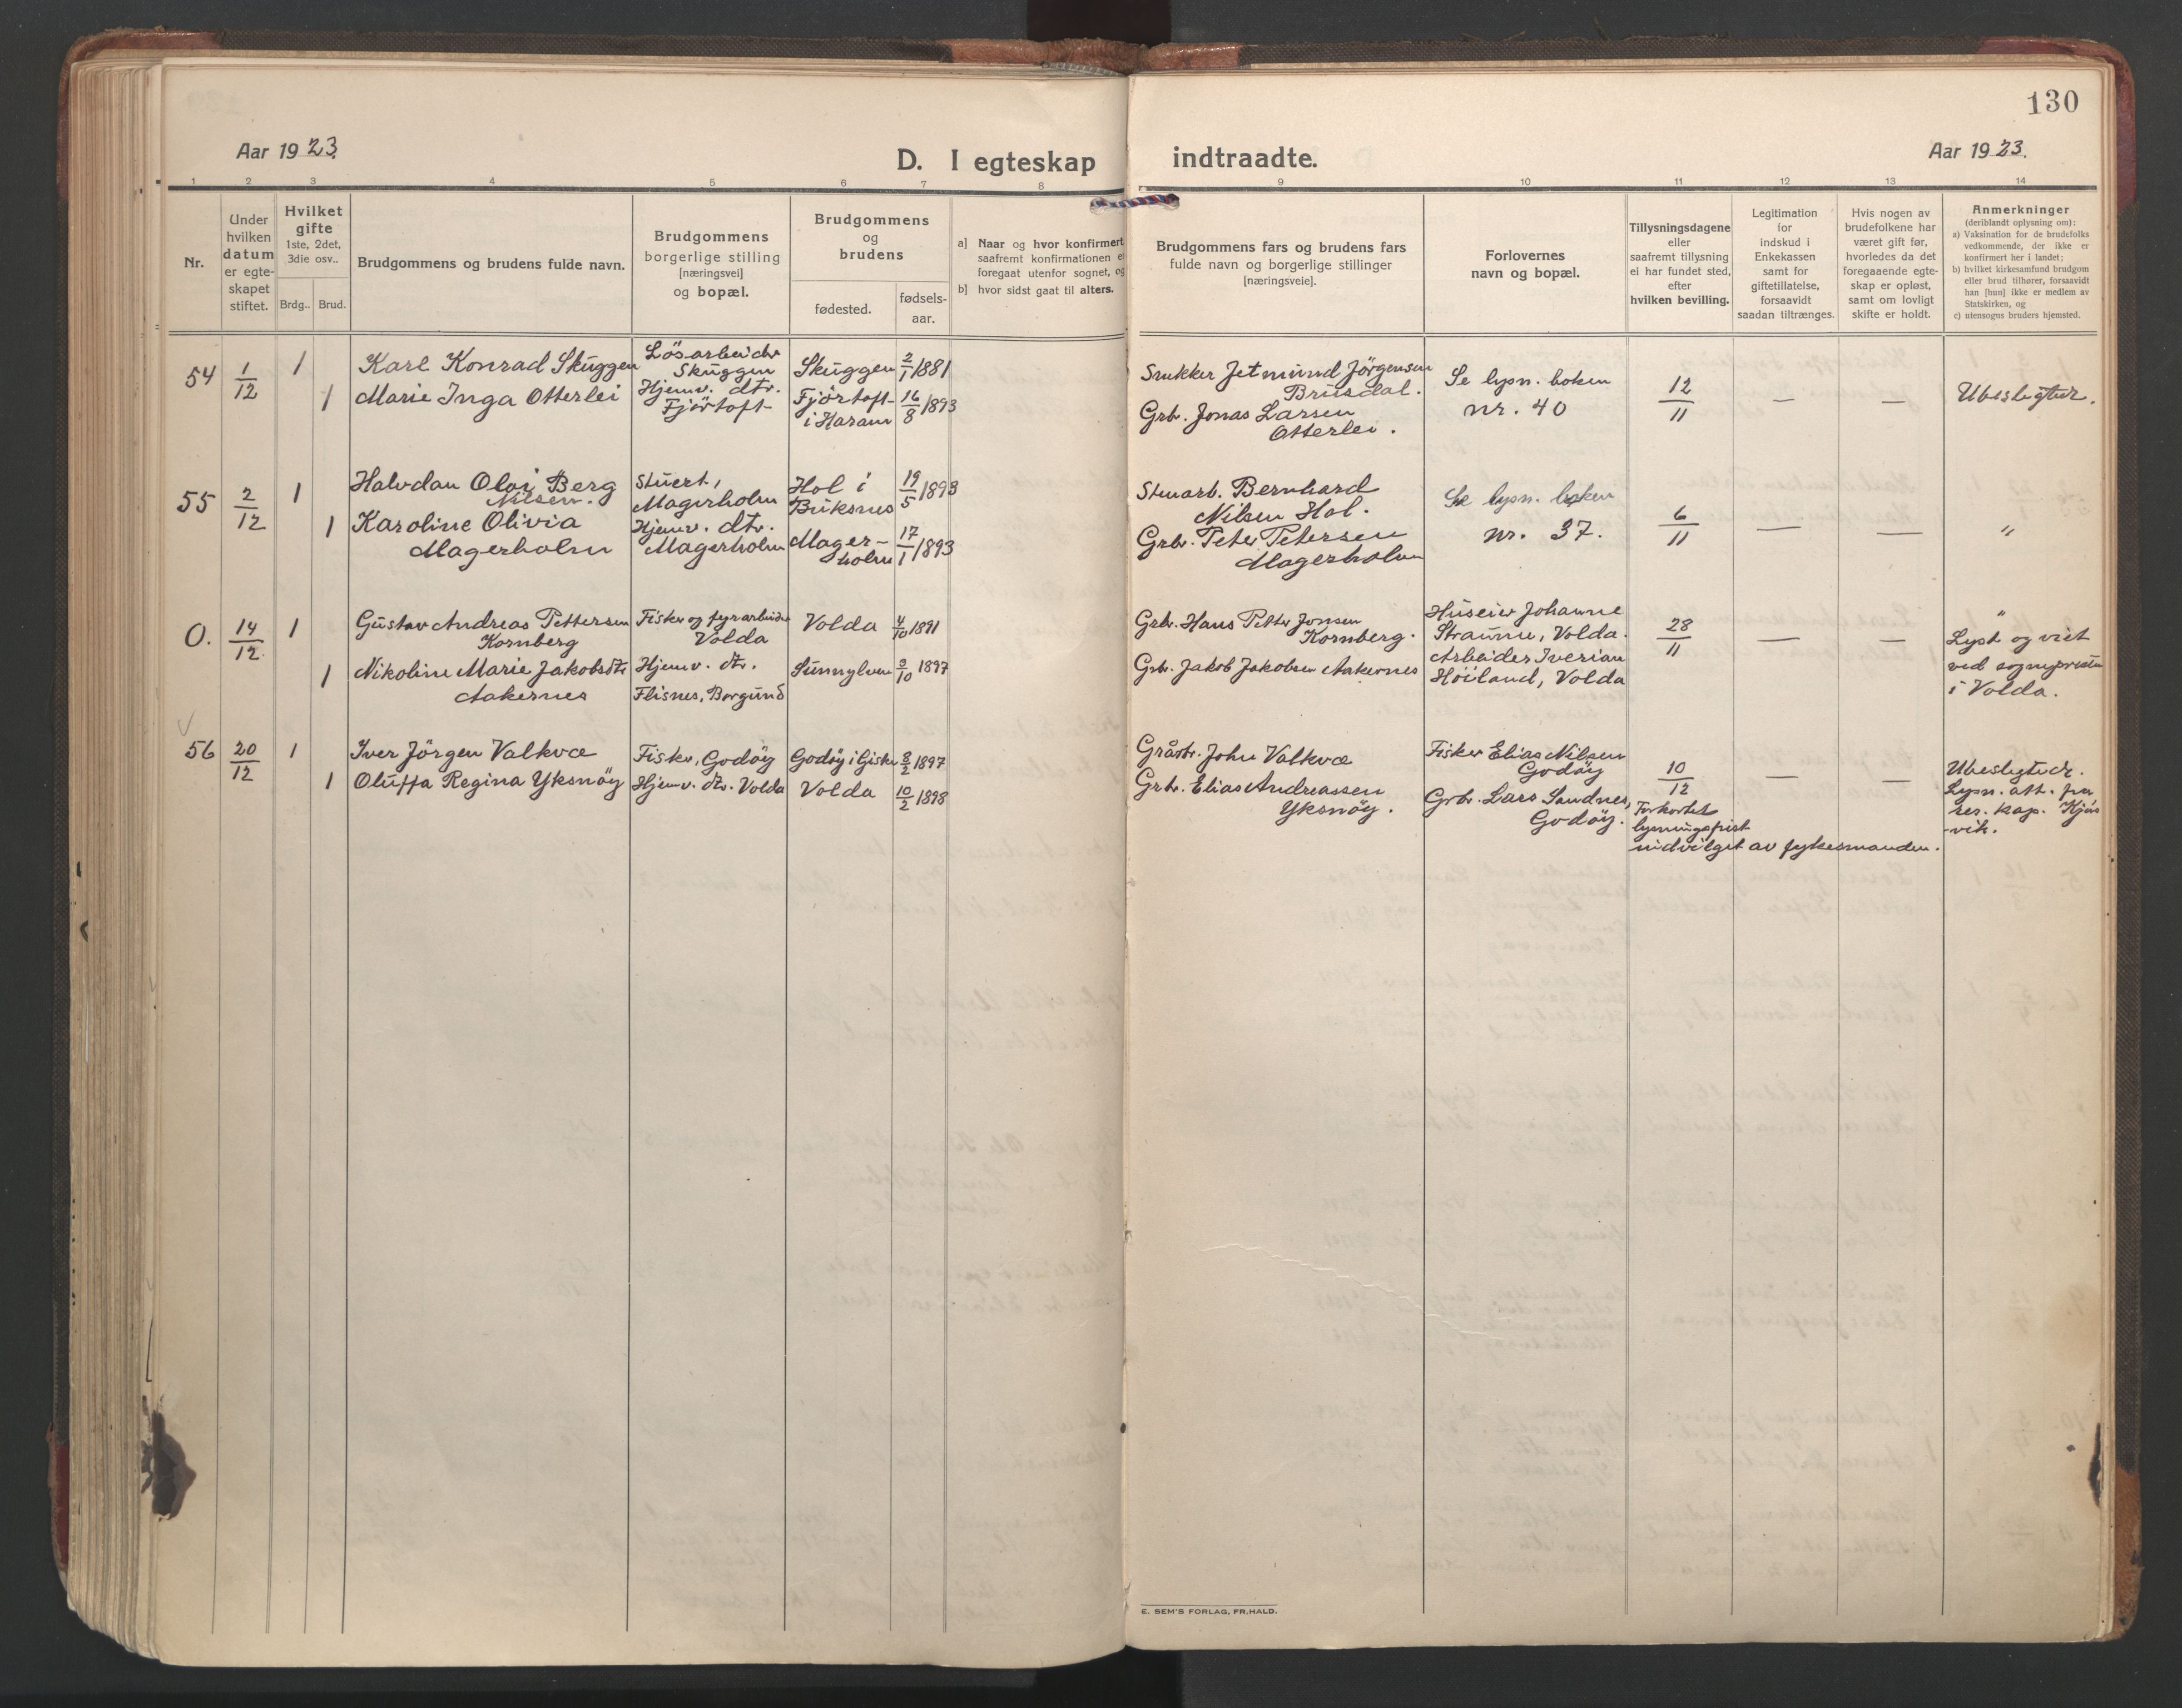 130
Aar 1923.
D. I egteskap indtraadte.
Aar 1923.
1 2 3 4 5 6 7 8 9 10 11 12 13 14
Nr.
Under
hvilken
datum
er egte-
skapet
stiftet.
Hvilket
gifte
1ste, 2det,
3die osv..
Brdg.. Brud.
Brudgommens og brudens fulde navn.
Brudgommens
borgerlige stilling
[næringsvei]
og bopæl.
Brudgommens
og
brudens
fødested.
fødsels-
aar.
a] Naar og hvor konfirmert
saafremt konfirmationen
foregaat utenfor sognet, og
b] hvor sidst gaat til alters.
Brudgommens fars og brudens fars
fulde navn og borgerlige stillinger
[næringsveie].
Forlovernes
navn og bopæl.
Tillysningsdagene
eller
saafremt tillysning
ei har fundet sted,
efter
hvilken bevilling.
Legitimation
for
indskud i
Enkekassen
samt for
giftetillatelse,
forsaavidt
saadan tiltrænges.
Hvis nogen av
brudefolkene har
været gift før,
hvorledes da det
foregaaende egte-
skap er opløst,
samt om lovligt
skifte er holdt.
Anmerkninger
(deriblandt oplysning om):
a) Vaksination for de brudefolks
vedkommende, der ikke er
konfirmert her i landet;
b) hvilket kirkesamfund brudgom
eller brud tilhører, forsaavidt
han [hun] ikke er medlem av
Statskirken, og
c) utensogns bruders hjemsted.
54 1/12 1
Karl Konrad Skuggen
Lösarbeider
Skuggen
Skuggen 2/1 1881
1 Marie Inga Otterlei
Hjemv. dtr.
Fjörtoft
Fjörtoft
i Haram
16/8 1893
Snekker Jetmund Jörgensen
Brusdal.
Grb. Jonas Larsen
Otterlei.
Se lysn. boken
nr. 40
12/11
—
—
Ubeslegtede.
55 2/12 1
Halvdan Olai Berg
Nilsen.
Stuert,
Magerholm
Hol i
Buksnes
19/5 1893
1 Karoline Olivia
Magerholm
Hjemv. dtr.
Magerholm
Mager-
holm
17/1 1893
Stuarb. Bernhard
Nilsen Hol.
Grb. Peter Petersen
Magerholm
Se lysn. boken
nr. 37.
6/11
—
—
"
0. 14/12 1
Gustav Andreas Pettersen
Kornberg
Fisker og fyrarbeider
Volda
Volda 4/10 1891
1 Nikoline Marie Jakobsdtr
Aakernes
Hjemv. dtr.
Flisnes, Borgund
Sunnylven 3/10 1897
Grb. Hans Petter Jonsen
Kornberg.
Grb. Jakob Jakobsen Aakernes
Huseier Johanne
Straume, Volda.
Arbeider Iverian
Höiland, Volda
28/11
—
—
"
Lyst og viet
ved sognepresten
i Volda.
56 20/12 1
Iver Jörgen Valkvæ
Fisker, Godöy
Godöy i Giske 3/2 1897
1 Oluffa Regina Yksnöy
Hjemv. dtr. Volda
Volda 10/2 1898
Gråstr. John Valkvæ
Grb. Elias Andreassen
Yksnöy.
Fisker Elias Nilsen
Godöy
Grb. Lars Sandnes,
Godöy.
10/12
Forkortet
lysningsfrist
indvilget av fylkesmanden.
—
—
Ubeslegtede.
Lysn. att. fra
res. kap. Kjös
-vik.
E. SEM'S FORLAG, FR.HALD.